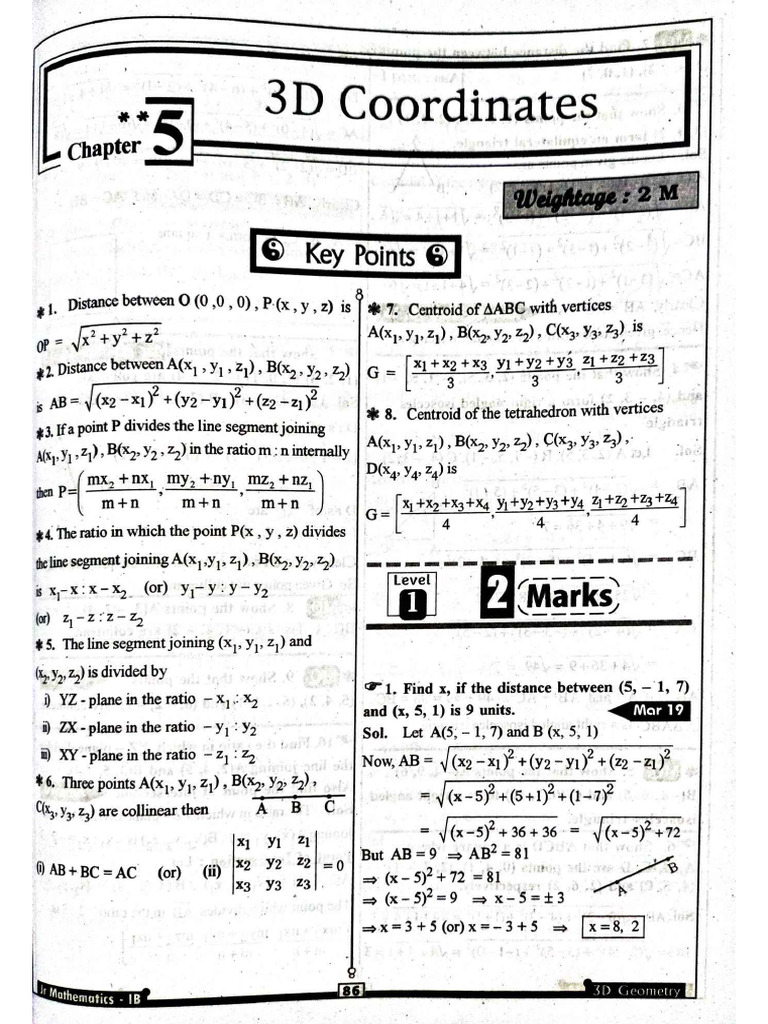 3D Coordinates
**
Chapter 5
Weightage : 2 M
Key Points
*1. Distance between O (0 ,0 , 0) , P (x , y , z) is
OP = √(x² + y² + z²)
*2. Distance between A(x₁ , y₁ , z₁) , B(x₂ , y₂ , z₂)
is AB = √((x₂ − x₁)² + (y₂ − y₁)² + (z₂ − z₁)²)
*3. If a point P divides the line segment joining
A(x₁, y₁ , z₁) , B(x₂, y₂ , z₂) in the ratio m : n internally
then P = ( (mx₂ + nx₁)/(m + n) , (my₂ + ny₁)/(m + n) , (mz₂ + nz₁)/(m + n) )
*4. The ratio in which the point P(x , y , z) divides
the line segment joining A(x₁,y₁ , z₁) , B(x₂, y₂, z₂)
is x₁− x : x − x₂ (or) y₁− y : y − y₂
(or) z₁ − z : z − z₂
*5. The line segment joining (x₁, y₁, z₁) and
(x₂, y₂, z₂) is divided by
i) YZ - plane in the ratio − x₁ : x₂
ii) ZX - plane in the ratio − y₁ : y₂
iii) XY - plane in the ratio − z₁ : z₂
*6. Three points A(x₁, y₁, z₁) , B(x₂, y₂, z₂) ,
C(x₃, y₃, z₃) are collinear then A B C
(i) AB + BC = AC (or) (ii) | x₁ y₁ z₁ |
| x₂ y₂ z₂ | = 0
| x₃ y₃ z₃ |
*7. Centroid of ΔABC with vertices
A(x₁, y₁, z₁) , B(x₂, y₂, z₂) , C(x₃, y₃, z₃) is
G = [ (x₁ + x₂ + x₃)/3 , (y₁ + y₂ + y₃)/3 , (z₁ + z₂ + z₃)/3 ]
*8. Centroid of the tetrahedron with vertices
A(x₁, y₁, z₁) , B(x₂, y₂, z₂) , C(x₃, y₃, z₃) ,
D(x₄, y₄, z₄) is
G = [ (x₁+x₂+x₃+x₄)/4 , (y₁+y₂+y₃+y₄)/4 , (z₁+z₂+z₃+z₄)/4 ]
Level 1 2 Marks
☞1. Find x, if the distance between (5, − 1, 7)
and (x, 5, 1) is 9 units. Mar 19
Sol. Let A(5, − 1, 7) and B (x, 5, 1)
Now, AB = √((x₂ − x₁)² + (y₂ − y₁)² + (z₂ − z₁)²)
= √((x − 5)² + (5 + 1)² + (1 − 7)²)
= √((x − 5)² + 36 + 36) = √((x − 5)² + 72)
But AB = 9 ⇒ AB² = 81
⇒ (x − 5)² + 72 = 81
⇒ (x − 5)² = 9 ⇒ x − 5 = ± 3
A B
⇒ x = 3 + 5 (or) x = − 3 + 5 ⇒ x = 8, 2
Jr Mathematics - IB
86
3D Geometry